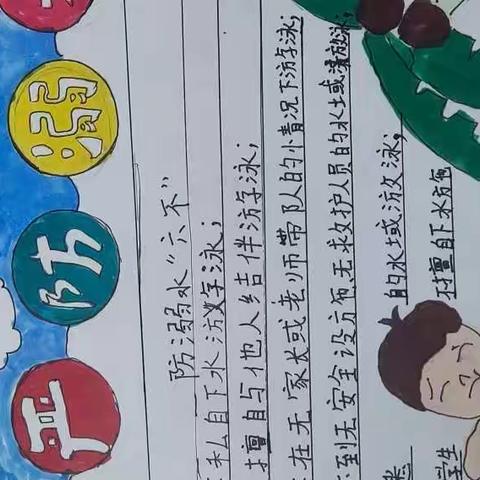 严防溺
防溺水“六不”
私自下水游泳；
擅自与他人结伴游泳；
在无家长或老师带队的情况下游泳；
到无安全设施无救护人员的水域
的水域游泳；
不擅自下水施
悉
学生